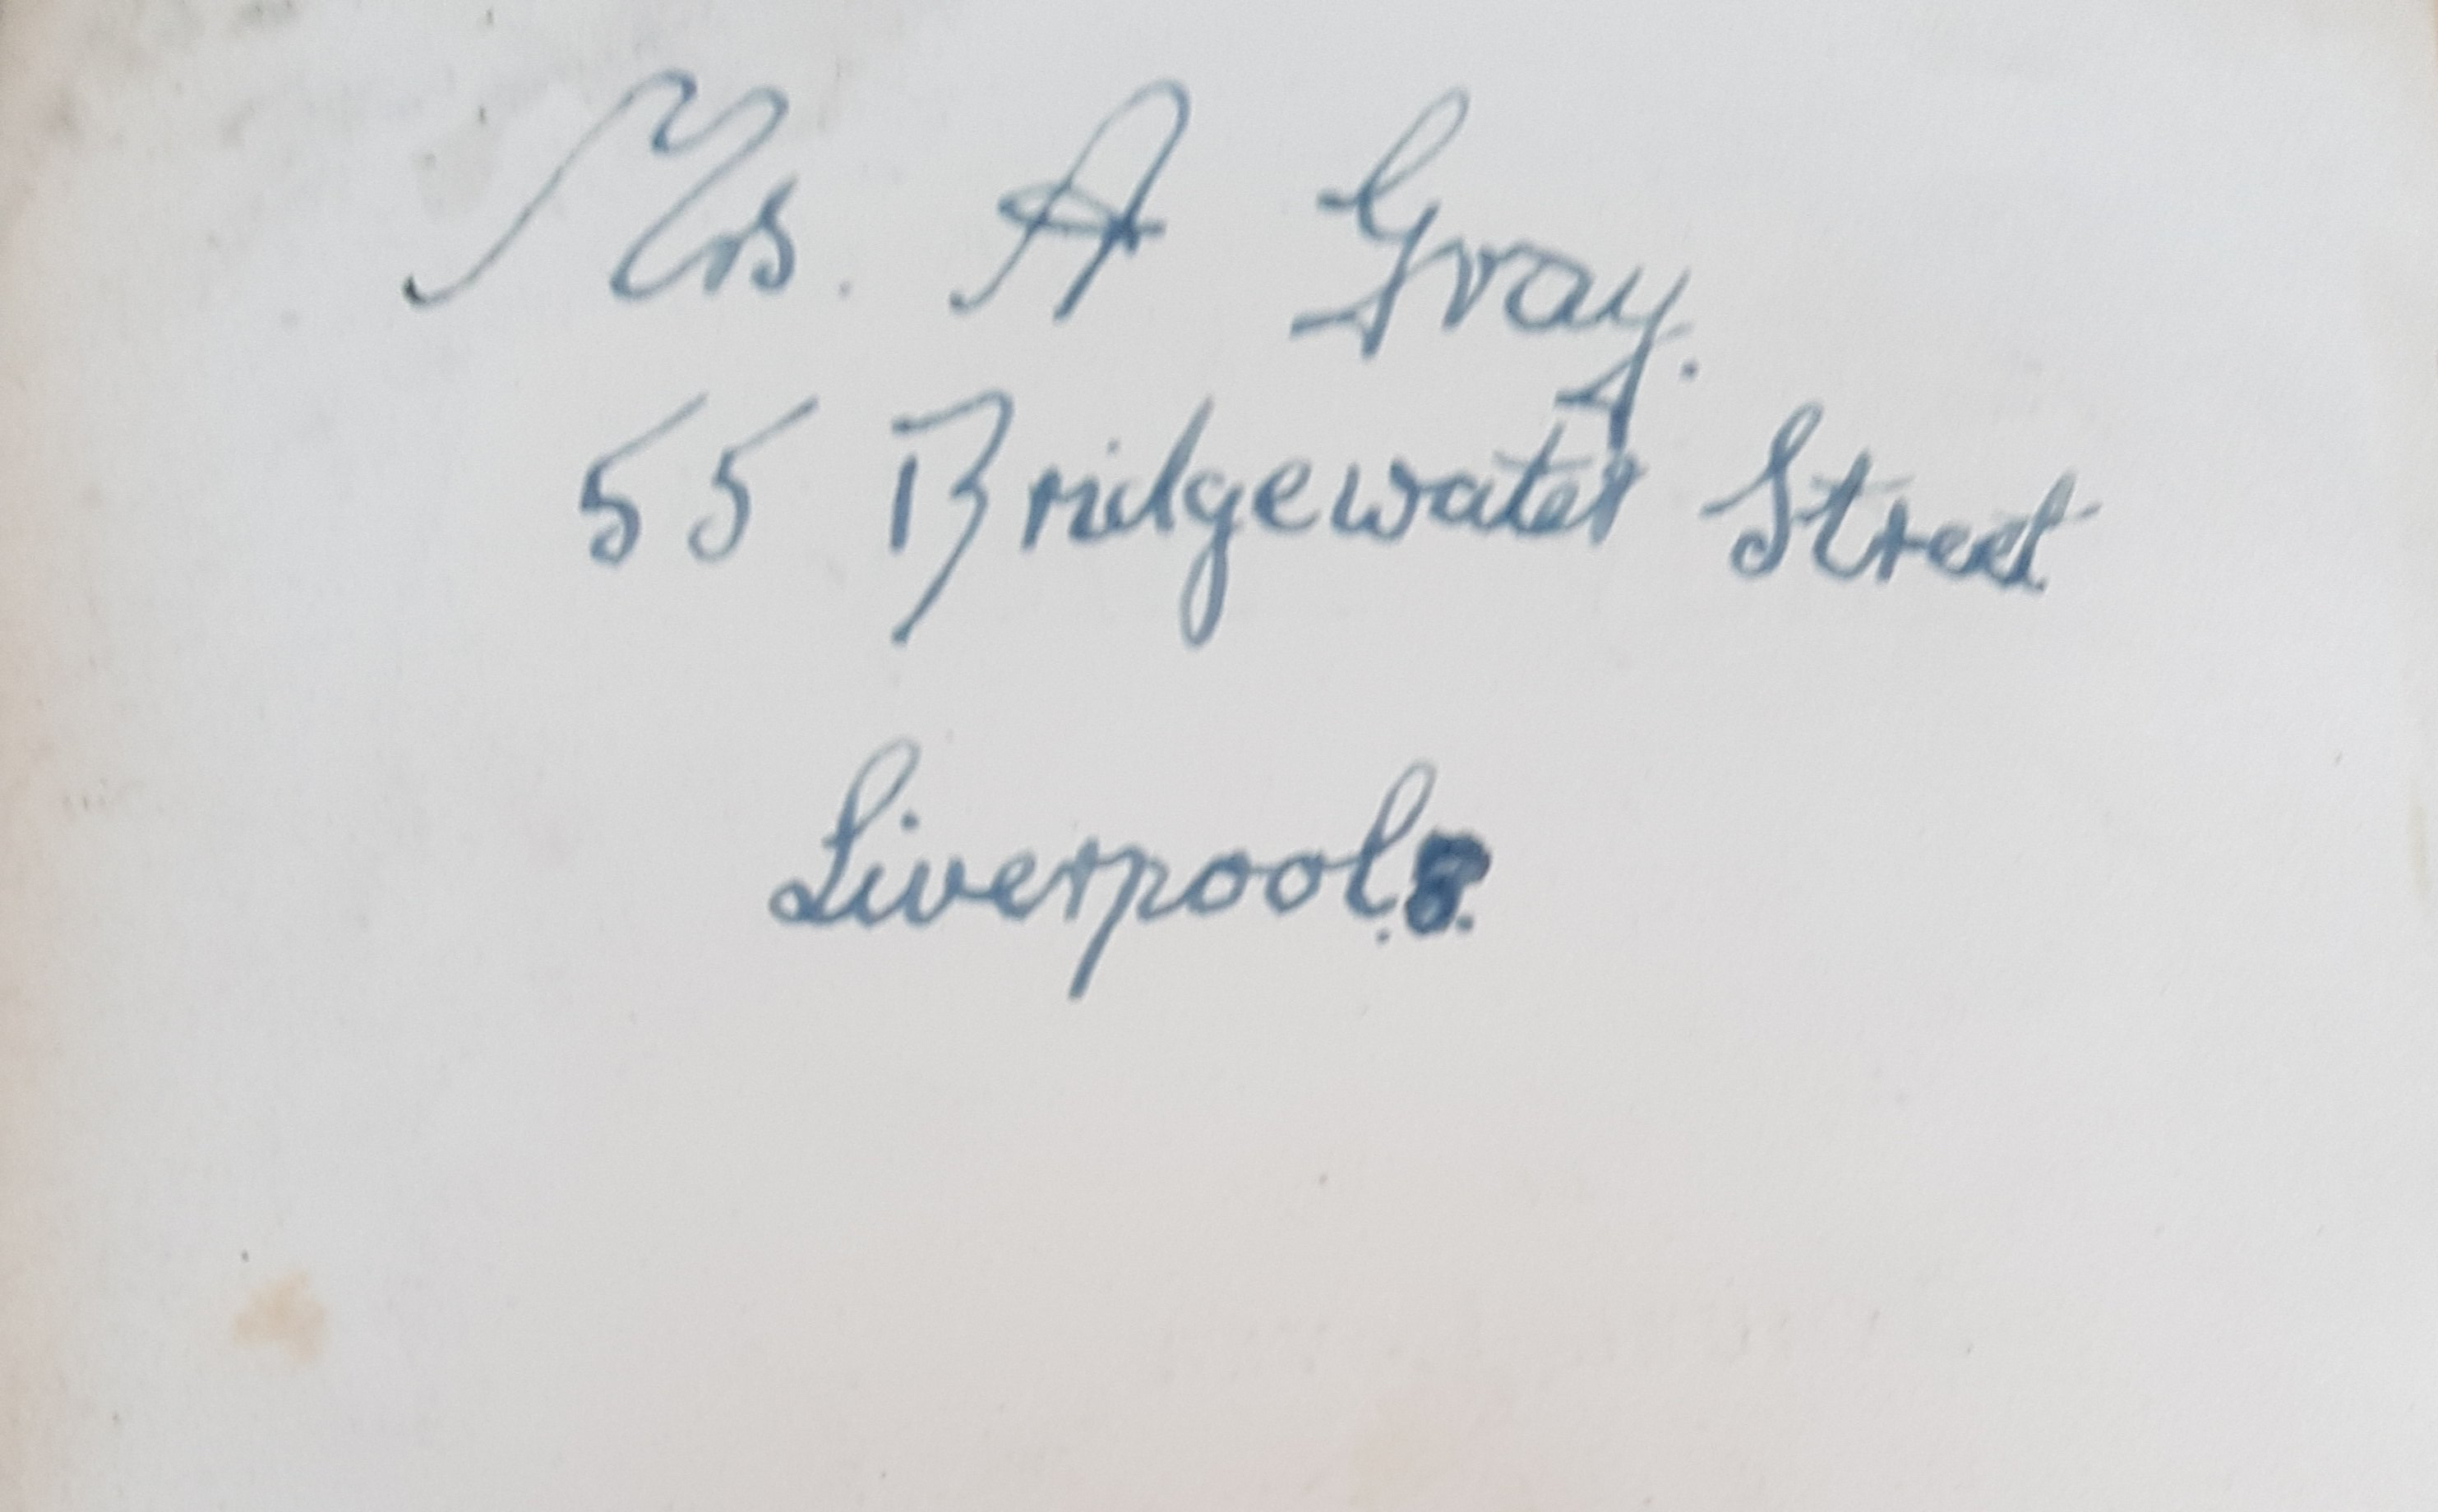 Mrs. A Gray.
55 Bridgewater Street
Liverpool.